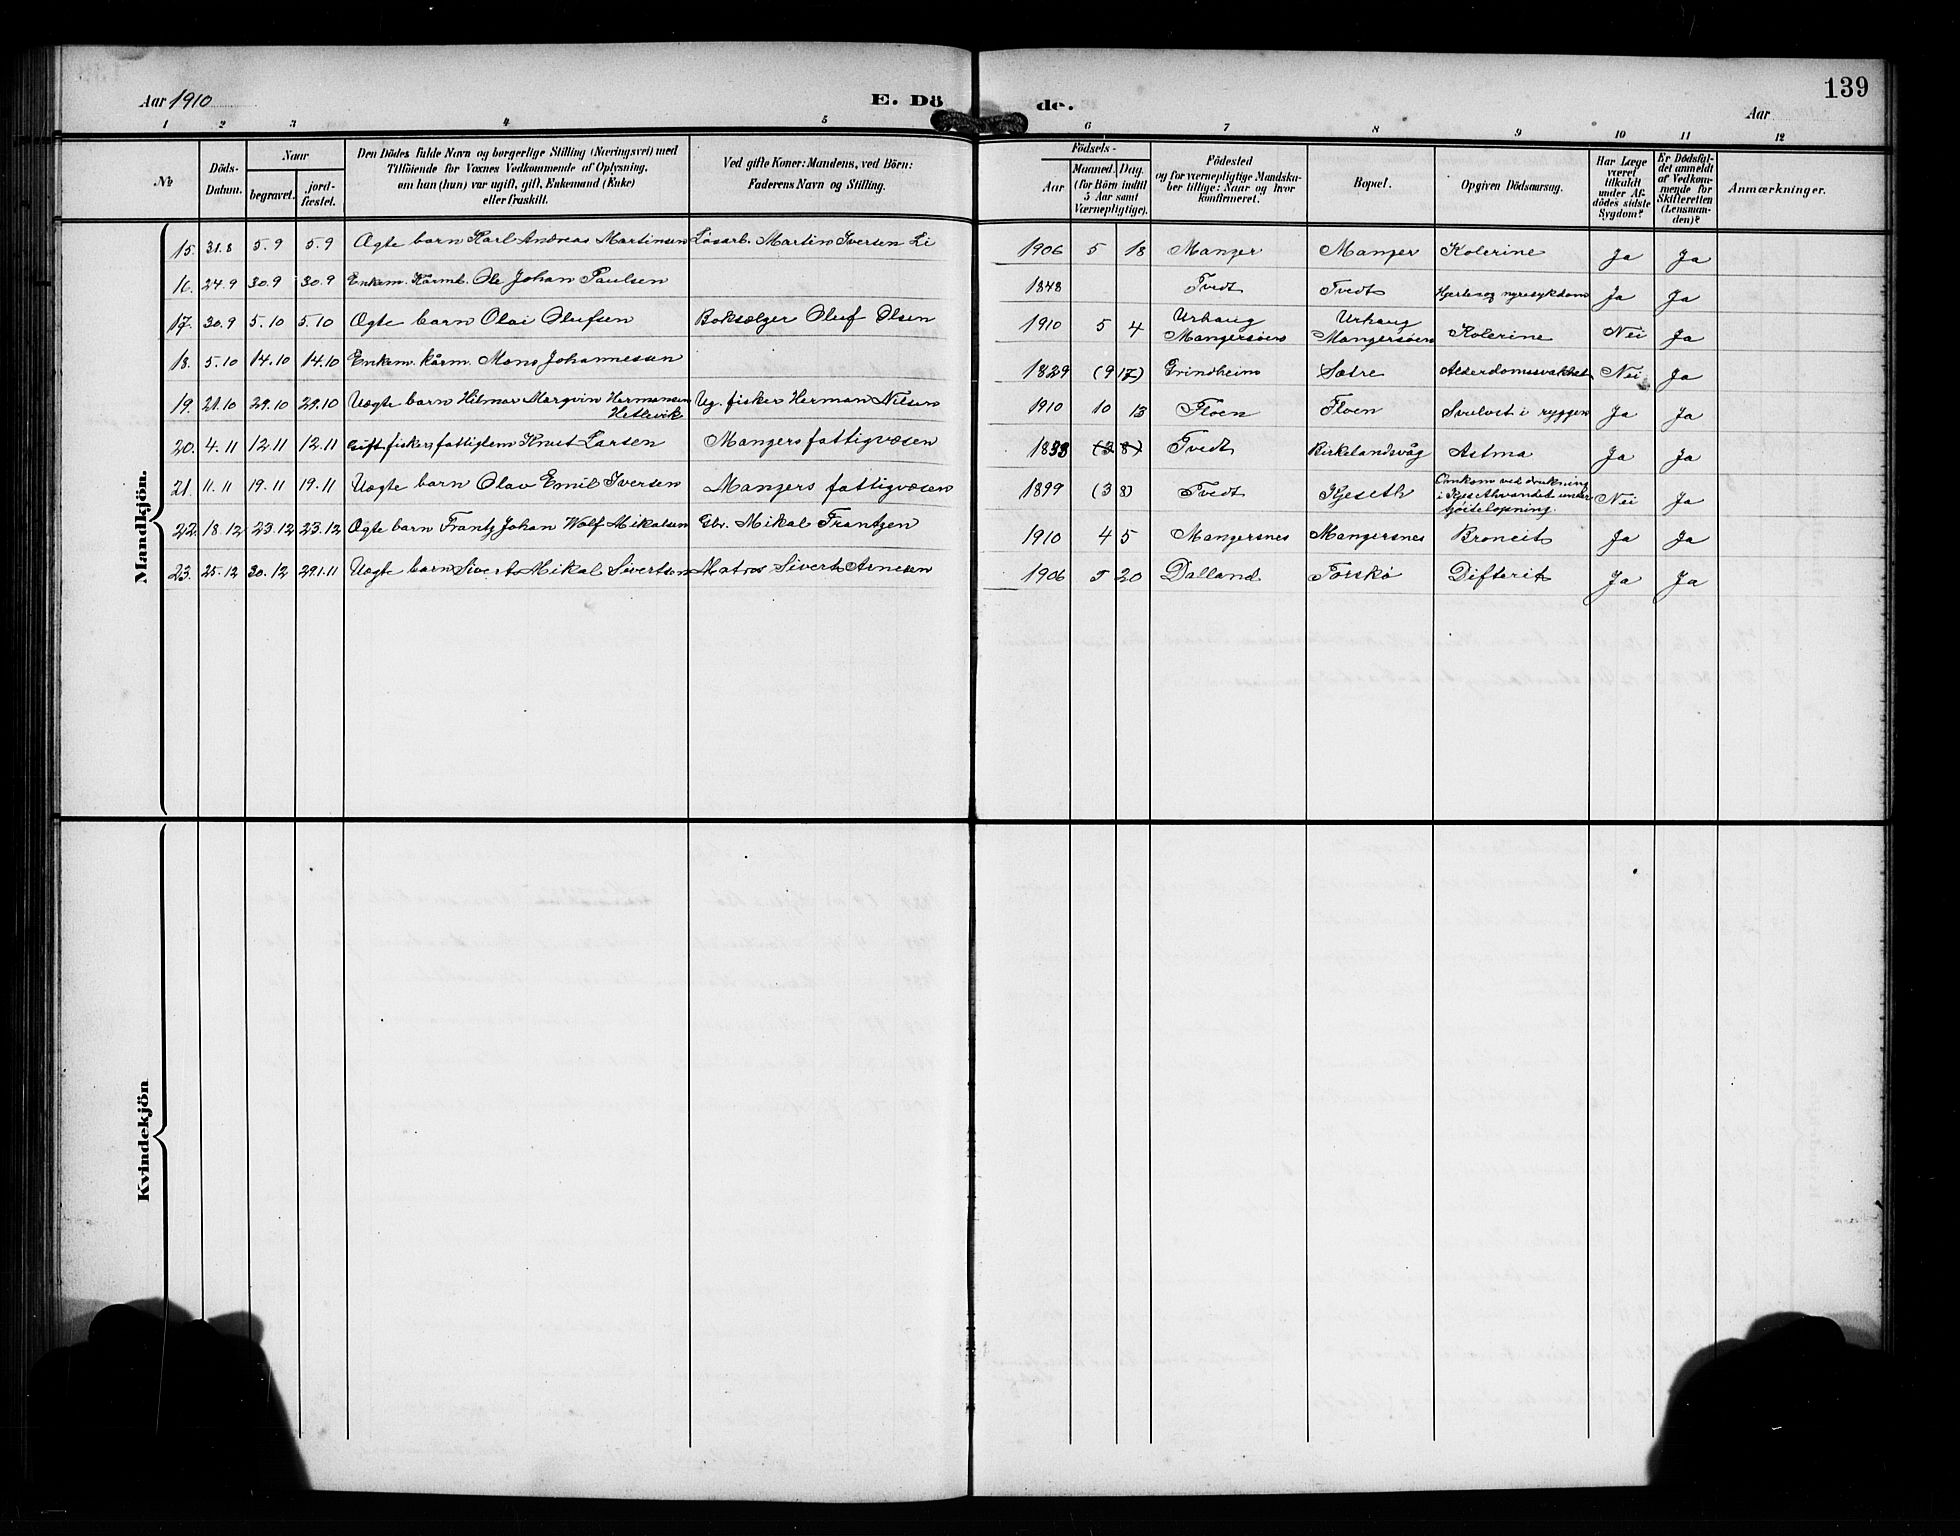 139
Aar 1910 E. Dö de. Aar
1 2 3 4 5 6 7 8 9 10 11 12
№ Döds-Datum. Naar begravet. jord-fæstet. Den Dödes fulde Navn og borgerlige Stilling (Næringsvei) med Tilföiende for Voxnes Vedkommende af Oplysning, om han (hun) var ugift, gift, Enkemand (Enke) eller fraskilt. Ved gifte Koner: Mandens, ved Börn: Faderens Navn og Stilling. Födsels- Aar Maaned. Dag. (for Börn indtil 5 Aar samt Værnepligtige). Födested og for værnepligtige Mandskaber tillige: Naar og hvor konfirmeret. Bopæl. Opgiven Dödsaarsag. Har Læge været tilkaldt under Afdödes sidste Sygdom? Er Dödsfaldet anmeldt af Vedkommende for Skifteretten (Lensmanden)? Anmærkninger.
Mandkjön.
15. 31.8 5.9 5.9 Ægte barn Karl Andreas Martinsen Løsarb. Martin Iversen Li 1906 5 18 Manger Manger Kolerine Ja Ja
16. 24.9 30.9 30.9 Enkem. Kårmd. Ole Johan Paulsen 1848 Tvedt Tvedt Hjerte og nyresykdom Ja Ja
17. 30.9 5.10 5.10 Ægte barn Olai Olufsen Boksælger Oluf Olsen 1910 5 4 Urhaug Mangersøen Urhaug Mangersøen Kolerine Nei Ja
18. 5.10 14.10 14.10 Enkem. kårm. Mons Johannessen 1829 (9 17) Grindheim Sætre Alderdomssvakhet Nei Ja
19. 21.10 29.10 29.10 Uægte barn Hilmar Margvin Hermansen Hetlevik Ug. fisker Herman Nilsen 1910 10 13 Floen Floen Svulvst i ryggen Ja Ja
20. 4.11 12.11 12.11 Gift fisker, fattiglem Knut Larsen Mangers fattigvæsen 1838 (3 8) Tvedt Birkelandsvåg Astma Ja Ja
21. 11.11 19.11 19.11 Uægte barn Olav Emil Iversen Mangers fattigvæsen 1899 (3 8) Tvedt Kjeseth Omkom ved drukning i Kjesethvandet under skøiteløpning. Nei Ja
22. 18.12 23.12 23.12 Ægte barn Frantz Johan Wolf Mikalsen Gbr. Mikal Frantzen 1910 4 5 Mangersnes Mangersnes Broncit Ja Ja
23. 25.12 30.12 29.1.11 Uægte barn Sivert Mikal Sivertsen Matros Sivert Arnesen 1906 5 20 Dalland Toskø Difterit Ja Ja
Kvindekjön